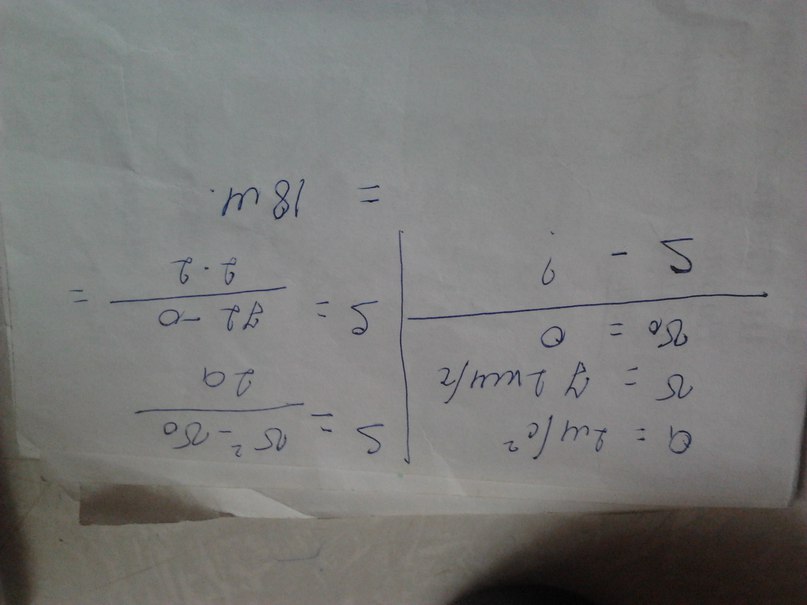 a = 2м/с²
v = 72км/г
v₀ = 0
S - ?
S = v² - v₀ / 2a
S = 72 - 0 / 2 · 2 =
= 18 м.